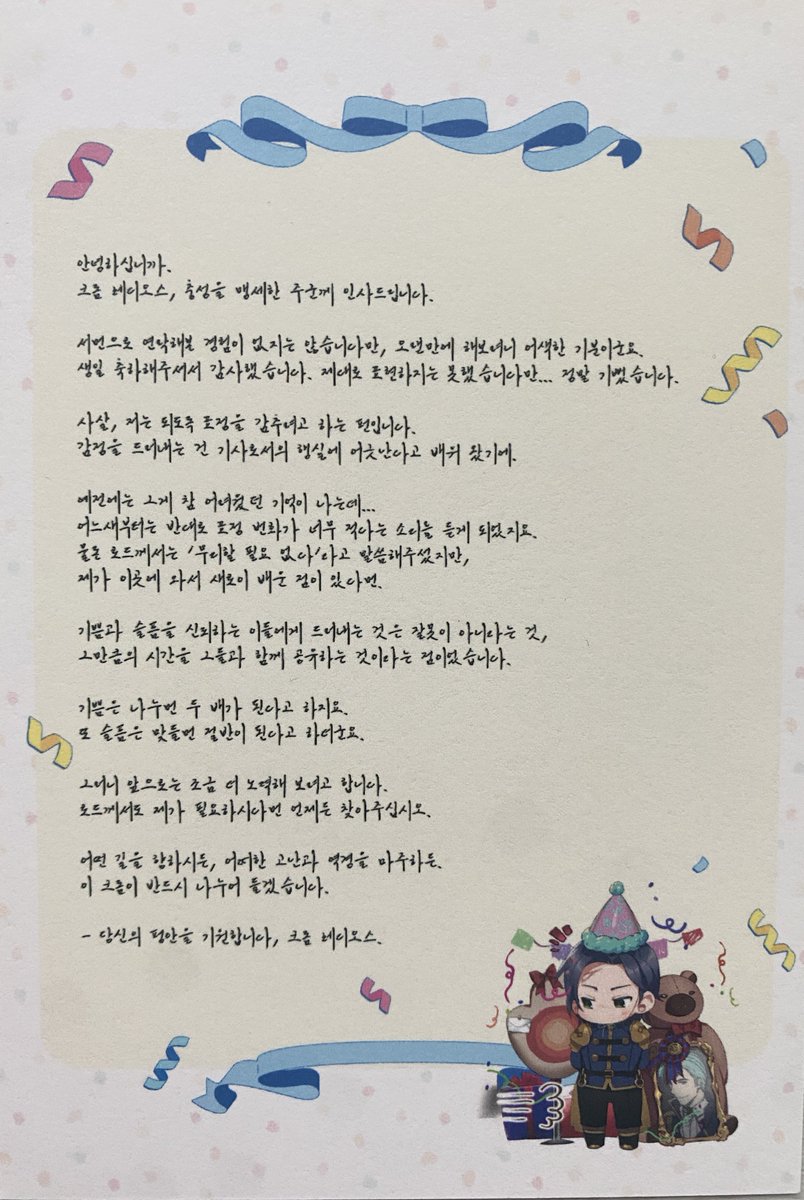 안녕하십니까.
크롬 레디오스, 충성을 맹세한 주군께 인사드립니다.
서면으로 연락해본 경험이 없지는 않습니다만, 오랜만에 해보려니 어색한 기분이군요.
생일 축하해주셔서 감사했습니다. 제대로 표현하지는 못했습니다만... 정말 기뻤습니다.
사실, 저는 되도록 표정을 감추려고 하는 편입니다.
감정을 드러내는 건 기사로서의 행실에 어긋난다고 배워 왔기에.
예전에는 그게 참 어려웠던 기억이 나는데...
어느새부터는 반대로 표정 변화가 너무 적다는 소리를 듣게 되었지요.
물론 로드께서는 '무리할 필요 없다'라고 말씀해주셨지만,
제가 이곳에 와서 새로이 배운 점이 있다면.
기쁨과 슬픔을 신뢰하는 이들에게 드러내는 것은 잘못이 아니라는 것,
그만큼의 시간을 그들과 함께 공유하는 것이라는 점이었습니다.
기쁨은 나누면 두 배가 된다고 하지요.
또 슬픔은 맞들면 절반이 된다고 하더군요.
그러니 앞으로는 조금 더 노력해 보려고 합니다.
로드께서도 제가 필요하시다면 언제든 찾아주십시오.
어떤 길을 향하시든, 어떠한 고난과 역경을 마주하든.
이 크롬이 반드시 나누어 들겠습니다.
- 당신의 평안을 기원합니다, 크롬 레디오스.